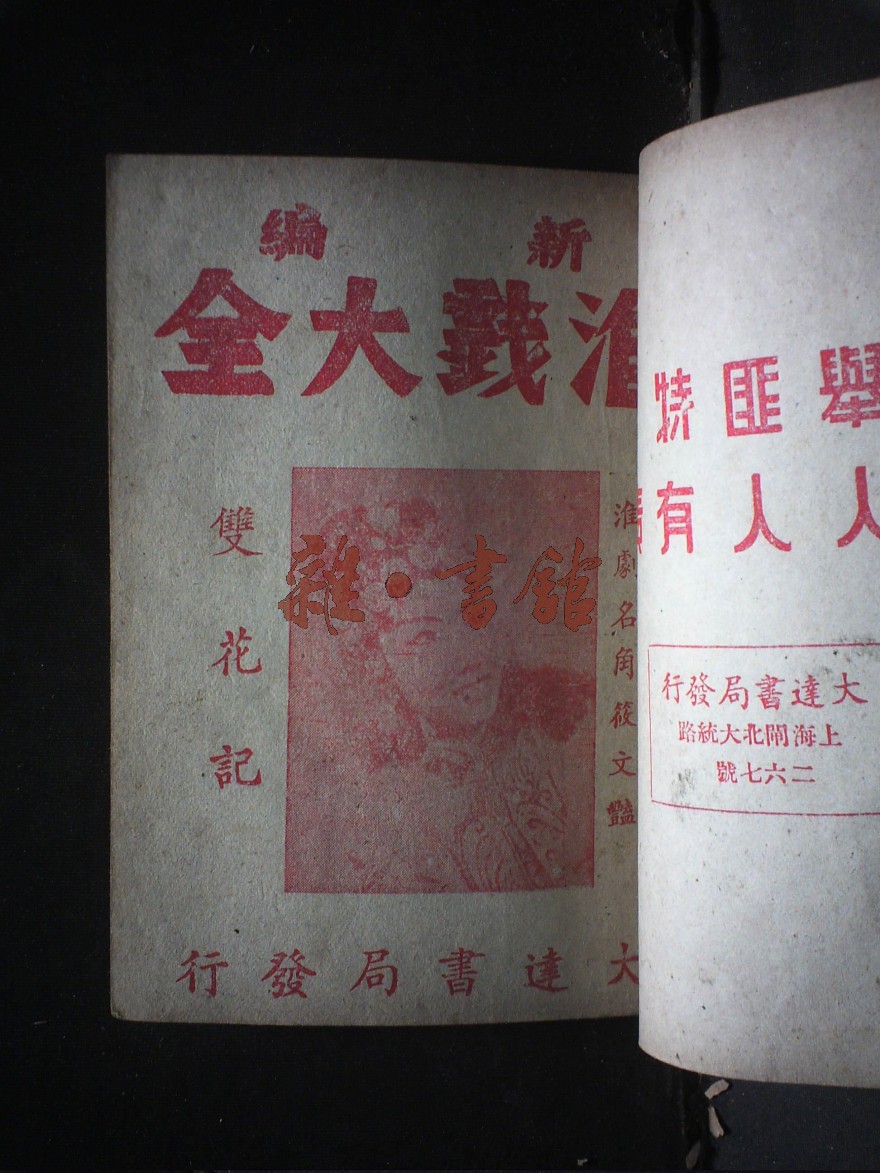 新編
淮戲大全
淮劇名角筱文豔
雙花記
雜·書館
大達書局發行
舉匪特
人人有
大達書局發行
上海閘北大統路
二六七號